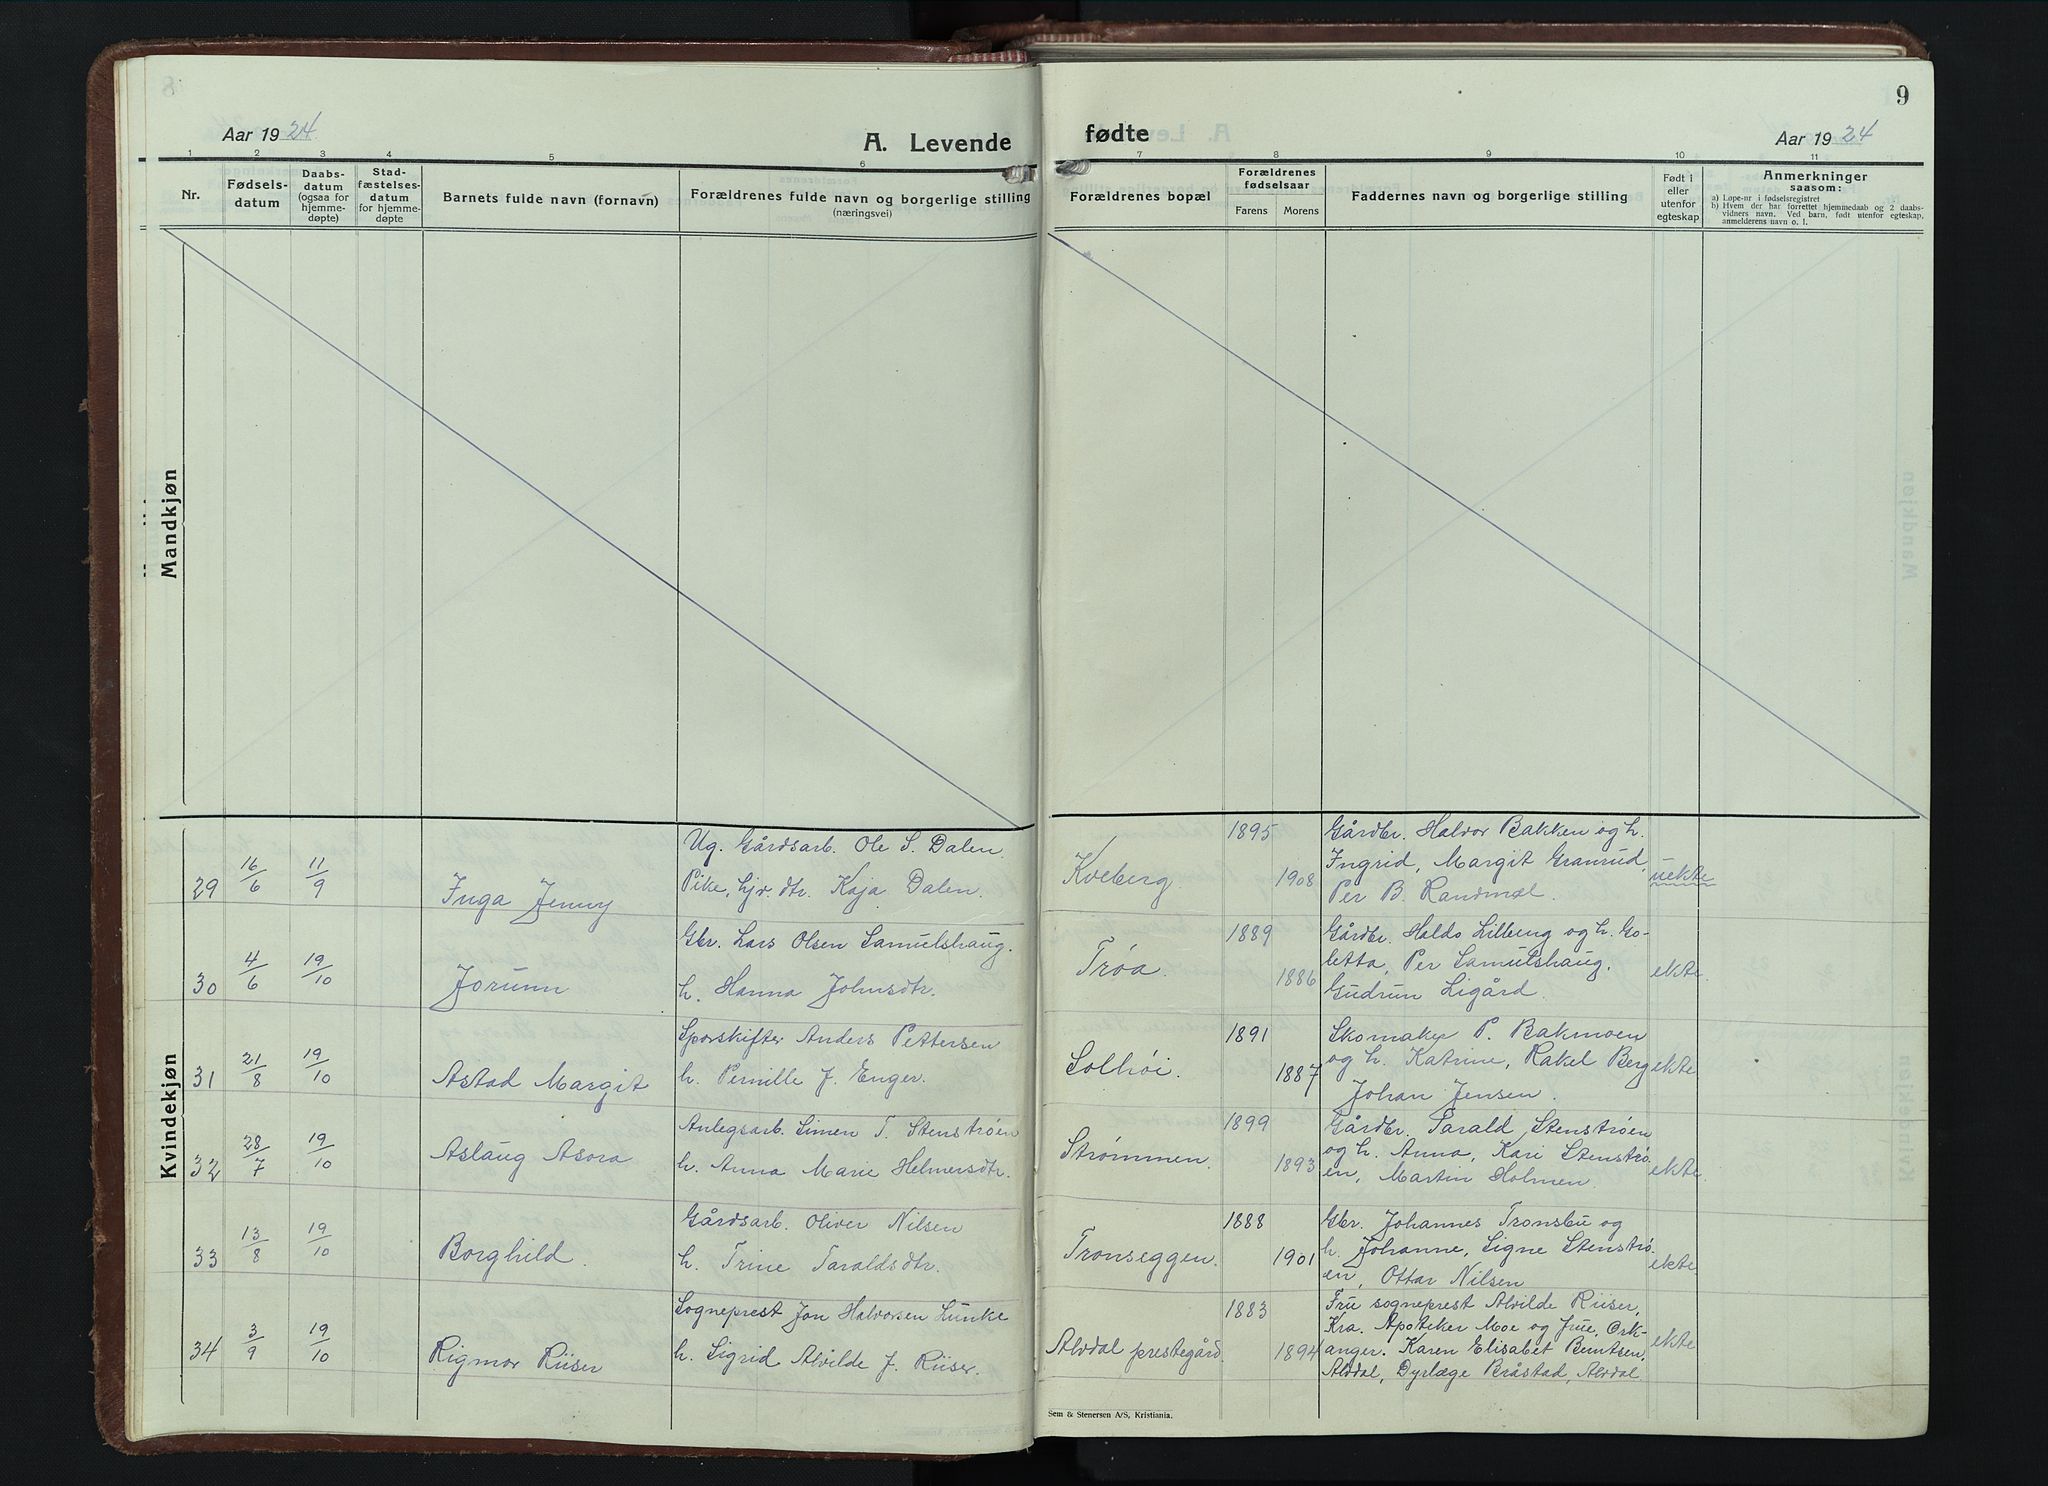 Aar 1924
A. Levende
fødte
Aar 1924
9
1 2 3 4 5 6 7 8 9 10 11
Nr.
Fødsels-
datum
Daabs-
datum
(ogsaa for
hjemme-
døpte)
Stad-
fæstelses-
datum
for hjemme-
døpte
Barnets fulde navn (fornavn)
Forældrenes fulde navn og borgerlige stilling
(næringsvei)
Forældrenes bopæl
Forældrenes
fødselsaar
Farens Morens
Faddernes navn og borgerlige stilling
Født i
eller
utenfor
egteskap
Anmerkninger
saasom:
a) Løpe-nr i fødselsregistret
b) Hvem der har forrettet hjemmedaab og 2 daabs-
vidners navn. Ved barn, født utenfor egteskap,
anmelderens navn o. l.
Mandkjøn
Kvindekjøn
29 16/6 11/9 Inga Jenny
Ug. Gårdsarb. Ole S. Dalen.
Pike, hjv. dtr. Kaja Dalen.
Kveberg.
1895
1908
Gårdbr. Halvor Bakken og h.
Ingrid, Margit Granrud,
Per B. Randmæl.
uekte
30 4/6 19/10 Jorunn
Gbr. Lars Olsen Samulshaug.
h. Hanna Johnsdtr.
Trøa.
1889
1886
Gårdbr. Haldo Lilleng og h. Go-
letta, Per Samulshaug.
Gudrun Ligård.
ekte.
31 21/8 19/10 Astad Margit
Sporskifter Anders Pettersen
h. Pernille J. Enger.
Solhøi.
1891
1887
Skomaker P. Bakmoen
og h. Katrine, Rakel Berg
Johan Jensen.
ekte
32 28/7 19/10 Aslaug Asora
Anlegsarb. Simen T. Stenstrøen
h. Anna Marie Helmersdtr.
Strømmen.
1899
1893
Gårdbr. Tarald Stenstrøen
og h. Anna, Kari Stenstrø-
en, Martin Holmen.
ekte.
33 13/8 19/10 Borghild.
Gårdsarb. Oliver Nilsen
h. Trine Taraldsdtr.
Tronseggen.
1888
1901
Gbr. Johannes Tronsbu og
h. Johanne, Signe Stenstrø-
en, Ottar Nilsen
ekte
34 3/9 19/10 Rigmor Riiser
Sogneprest Jon Halvorsen Hunke
h. Sigrid Alvilde J. Riiser.
Alvdal prestegård.
1883
1894
Fru sogneprest Alvilde Riiser,
Kra. Apoteker Moe og frue, Ork-
anger. Karen Elisabet Berntsen,
Alvdal, Dyrlæge Bråstad, Alvdal.
ekte
Sem & Stenersen A/S, Kristiania.